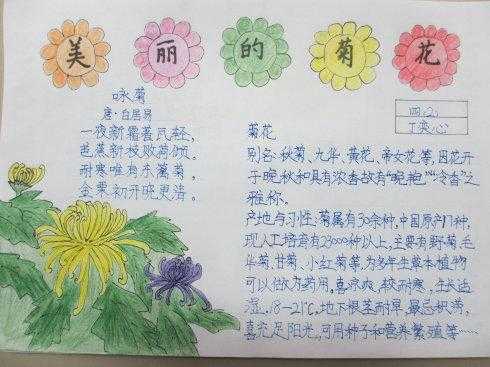 美丽的菊花
咏菊
唐·白居易
一夜新霜著瓦轻,
芭蕉新折败荷倾。
耐寒唯有东篱菊,
金粟初开晓更清。
四(2)
丁奕心
菊花
别名:秋菊、九华、黄花、帝女花等,因花开
于晚秋和具有浓香故有“晚艳”“冷香”之
雅称。
产地与习性:菊属有30余种,中国原产17种,
现人工培育有23000种以上,主要有野菊、毛
华菊、甘菊、小红菊等,为多年生草本植物
可以做为药用,喜凉爽,较耐寒,生长适
温18-21℃,地下根茎耐旱,最忌积涝,
喜充足阳光,可用种子和营养繁殖等……